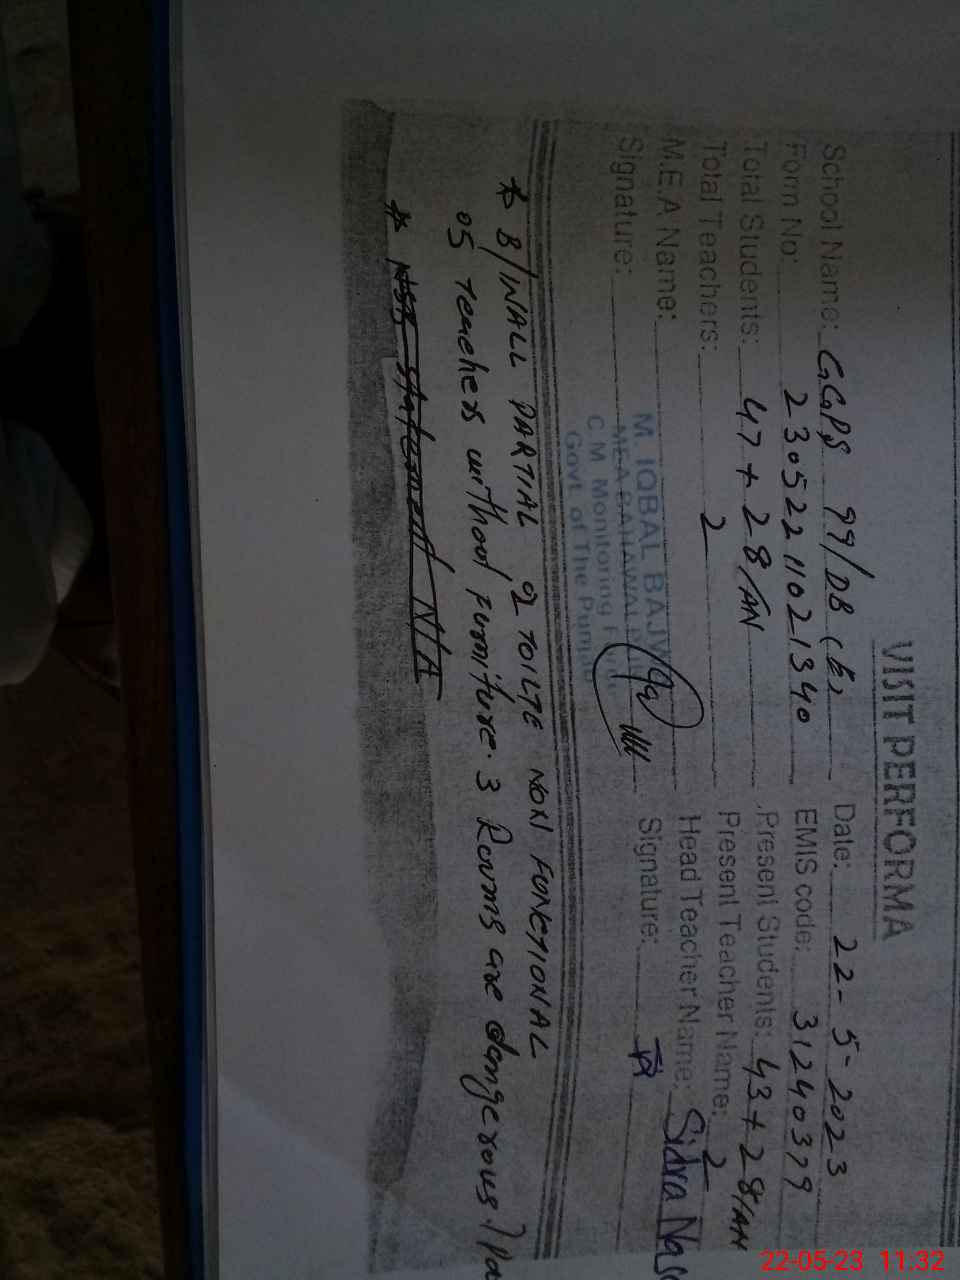 VISIT PERFORMA
School Name: GGPS 99/DB (E) Date: 22-5-2023
Form No: 23052211021340 EMIS code: 31240379
Total Students: 47 + 28/AN Present Students: 43 + 28/AN
Total Teachers: 2 Present Teacher Name: 2
M.E.A Name: M. IQBAL BAJWA Head Teacher Name: Sidra
MEA BAHAWALPUR
Signature: Signature:
C M Monitoring Force
Govt of The Punjab
* B/WALL PARTIAL 02 TOILTE NON FUNCTIONAL
05 Teachers without furniture. 3 Rooms are dangerous
* statement N/A
22-05-23 11:32